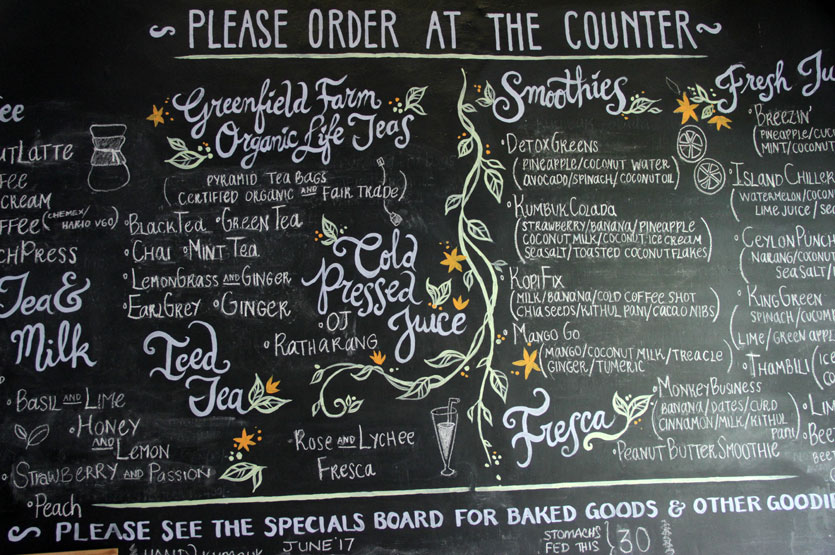 PLEASE ORDER AT THE COUNTER
UTLATTE
CREAM
(CHEMEX/
HARIO V60)
CHPRESS
Tea &
Milk
Greenfield Farm
Organic Life Teas
(PYRAMID TEA BAGS
CERTIFIED ORGANIC AND FAIR TRADE)
•BLACK TEA •GREEN TEA
•CHAI •MINT TEA
•LEMONGRASS AND GINGER
•EARL GREY •GINGER
Cold
Pressed
Juice
•OJ
•RATHARANG
Iced
Tea
•BASIL AND LIME
•HONEY
AND
LEMON
•STRAWBERRY AND PASSION
•PEACH
•ROSE AND LYCHEE
FRESCA
Smoothies
•DETOX GREENS
(PINEAPPLE/COCONUT WATER
AVOCADO/SPINACH/COCONUT OIL)
•KUMBUK COLADA
(STRAWBERRY/BANANA/PINEAPPLE
COCONUT MILK/COCONUT ICE CREAM
SEASALT/TOASTED COCONUT FLAKES)
•KOPI FIX
(MILK/BANANA/COLD COFFEE SHOT
CHIA SEEDS/KITHUL PANI/CACAO NIBS)
•MANGO GO
(MANGO/COCONUT MILK/TREACLE
GINGER/TURMERIC)
•MONKEY BUSINESS
(BANANA/DATES/CURD
CINNAMON/MILK/KITHUL
PANI)
•PEANUT BUTTER SMOOTHIE
Fresca
Fresh Ju
•BREEZIN'
(PINEAPPLE/CUCU
MINT/COCONUT
•ISLAND CHILLER
(WATERMELON/COCON
LIME JUICE/SEA
•CEYLON PUNCH
(NARANG/COCONUT
SEASALT/
•KING GREEN
(SPINACH/CUCUM
LIME/GREEN APPL
•THAMBILI (ICE
PLEASE SEE THE SPECIALS BOARD FOR BAKED GOODS & OTHER GOODI
JUNE '17
STOMACHS
FED THIS
30